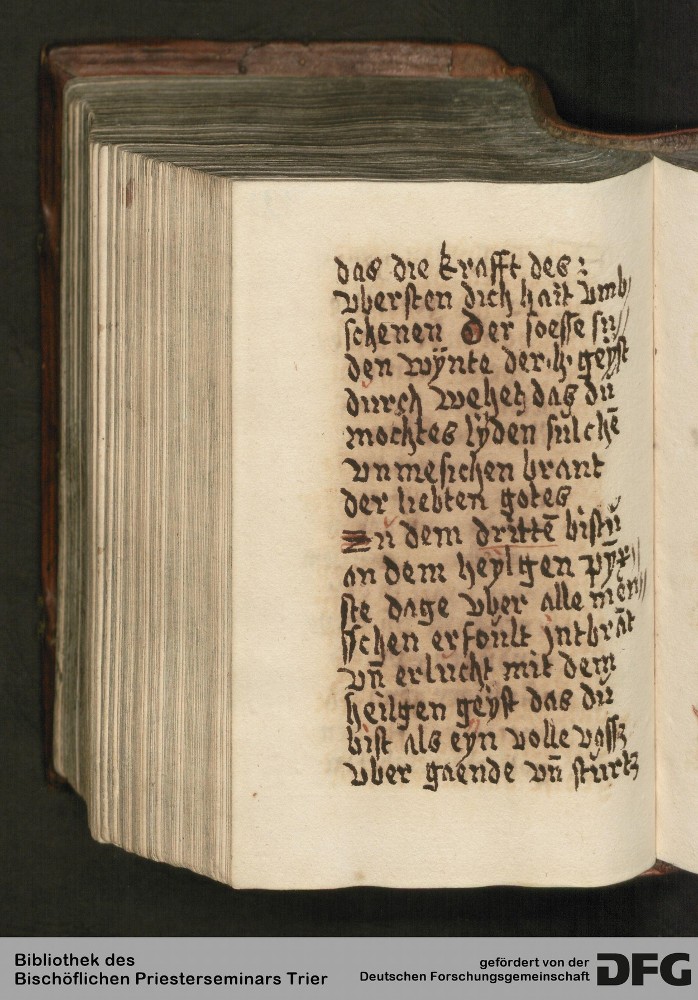 das die krafft des :
vbersten dich hait vmb//
schenen Der soesse su//
den wÿnte der .h. geÿst
durch wehet das du
mochtes lÿden sulchē
vnmesichen brant
der liebten gotes
Zu dem drittē bistu
an dem heylgen pȳx//
ste dage vber alle men//
sschen erfoult jntbrāt
vn̄ erlucht mit dem
heilgen geÿst das du
bist als eyn volle vassz
vber gaende vn̄ sturtz
Bibliothek des
Bischöflichen Priesterseminars Trier
gefördert von der
Deutschen Forschungsgemeinschaft
DFG